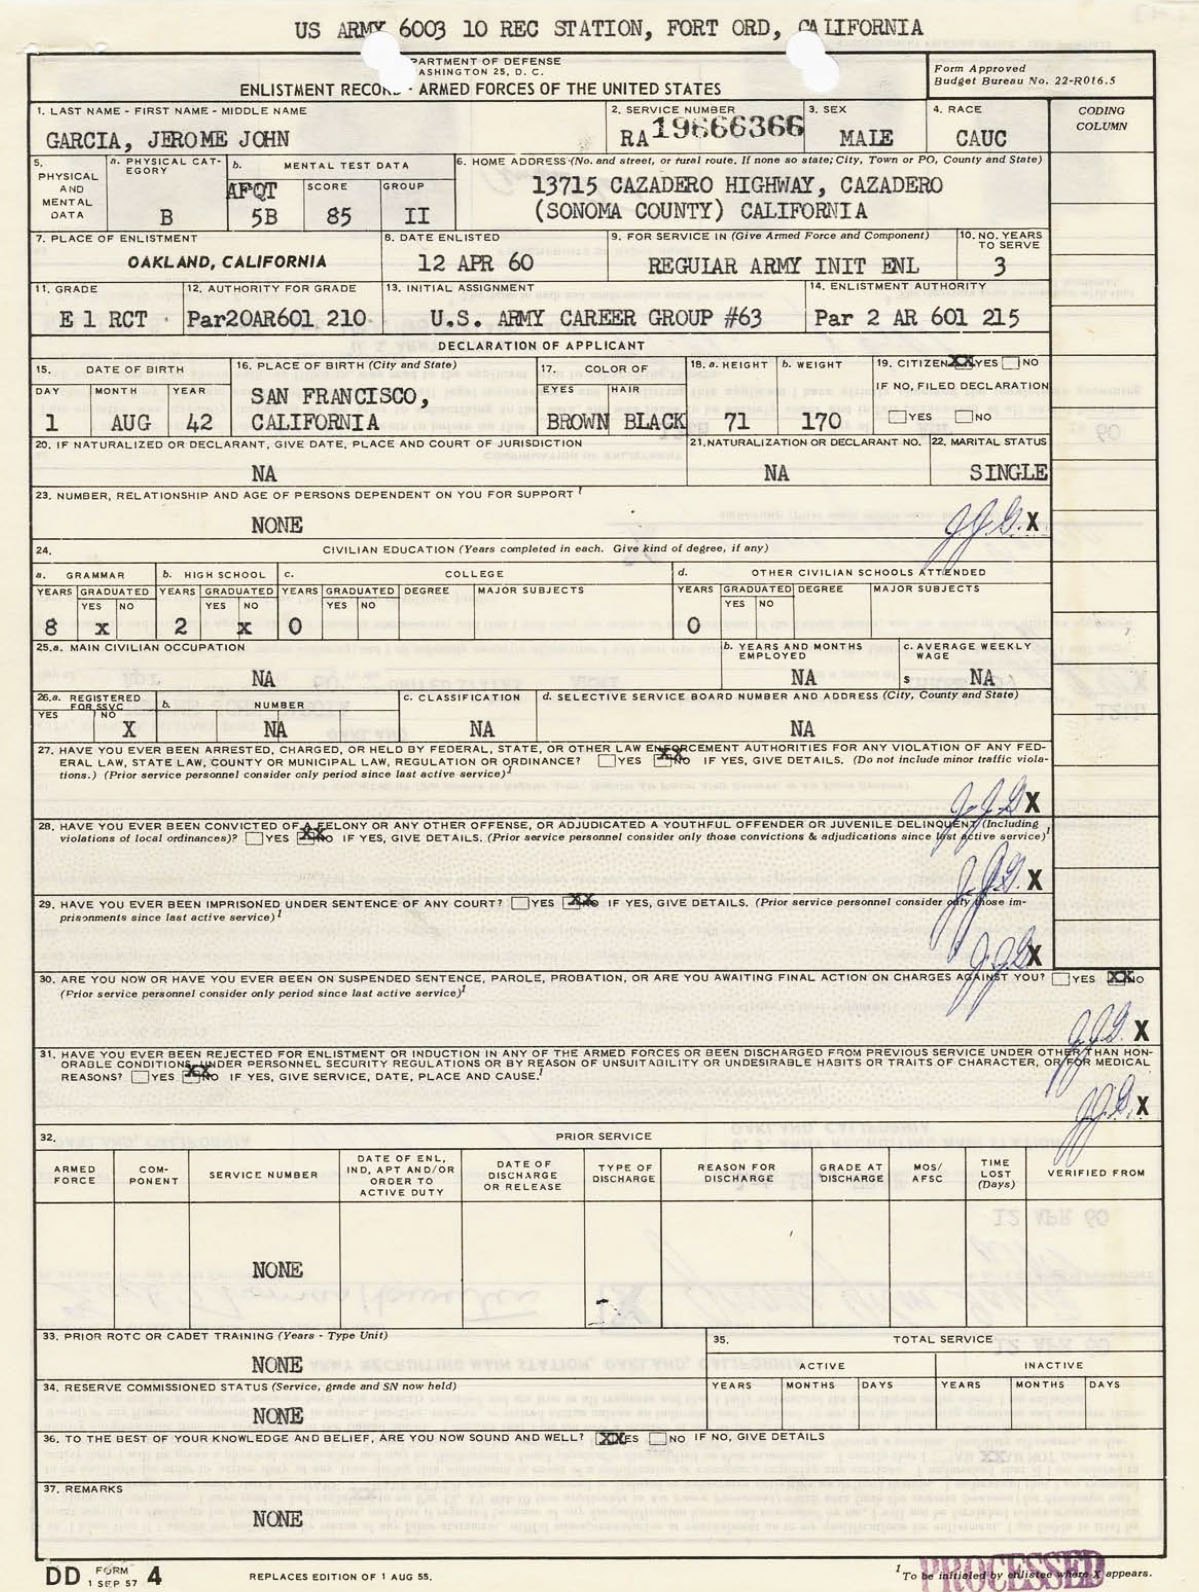 US ARMY 6003 10 REC STATION, FORT ORD, CALIFORNIA
PARTMENT OF DEFENSE
ASHINGTON 25, D. C.
ENLISTMENT RECORD - ARMED FORCES OF THE UNITED STATES
Form Approved
Budget Bureau No. 22-R016.5
1. LAST NAME - FIRST NAME - MIDDLE NAME
GARCIA, JEROME JOHN
2. SERVICE NUMBER
RA 19666366
3. SEX
MALE
4. RACE
CAUC
CODING
COLUMN
5.
PHYSICAL
AND
MENTAL
DATA
a. PHYSICAL CAT-
EGORY
B
b. MENTAL TEST DATA
AFQT
5B
SCORE
85
GROUP
II
6. HOME ADDRESS (No. and street, or rural route. If none so state; City, Town or PO, County and State)
13715 CAZADERO HIGHWAY, CAZADERO
(SONOMA COUNTY) CALIFORNIA
7. PLACE OF ENLISTMENT
OAKLAND, CALIFORNIA
8. DATE ENLISTED
12 APR 60
9. FOR SERVICE IN (Give Armed Force and Component)
REGULAR ARMY INIT ENL
10. NO. YEARS
TO SERVE
3
11. GRADE
E 1 RCT
12. AUTHORITY FOR GRADE
Par20AR601 210
13. INITIAL ASSIGNMENT
U.S. ARMY CAREER GROUP #63
14. ENLISTMENT AUTHORITY
Par 2 AR 601 215
DECLARATION OF APPLICANT
15. DATE OF BIRTH
DAY MONTH YEAR
1 AUG 42
16. PLACE OF BIRTH (City and State)
SAN FRANCISCO,
CALIFORNIA
17. COLOR OF
EYES HAIR
BROWN BLACK
18. a. HEIGHT
71
b. WEIGHT
170
19. CITIZEN XX YES NO
IF NO, FILED DECLARATION
YES NO
20. IF NATURALIZED OR DECLARANT, GIVE DATE, PLACE AND COURT OF JURISDICTION
NA
21. NATURALIZATION OR DECLARANT NO.
NA
22. MARITAL STATUS
SINGLE
23. NUMBER, RELATIONSHIP AND AGE OF PERSONS DEPENDENT ON YOU FOR SUPPORT 1
NONE
J.J.G. X
24. CIVILIAN EDUCATION (Years completed in each. Give kind of degree, if any)
a. GRAMMAR
b. HIGH SCHOOL
c. COLLEGE
d. OTHER CIVILIAN SCHOOLS ATTENDED
YEARS GRADUATED YEARS GRADUATED YEARS GRADUATED DEGREE MAJOR SUBJECTS YEARS GRADUATED DEGREE MAJOR SUBJECTS
YES NO YES NO YES NO YES NO
8 x 2 x 0 0
25.a. MAIN CIVILIAN OCCUPATION
NA
b. YEARS AND MONTHS
EMPLOYED
NA
c. AVERAGE WEEKLY
WAGE
$ NA
26.a. REGISTERED
FOR SSVC
YES NO
X
b. NUMBER
NA
c. CLASSIFICATION
NA
d. SELECTIVE SERVICE BOARD NUMBER AND ADDRESS (City, County and State)
NA
27. HAVE YOU EVER BEEN ARRESTED, CHARGED, OR HELD BY FEDERAL, STATE, OR OTHER LAW ENFORCEMENT AUTHORITIES FOR ANY VIOLATION OF ANY FED-
ERAL LAW, STATE LAW, COUNTY OR MUNICIPAL LAW, REGULATION OR ORDINANCE? YES XX NO IF YES, GIVE DETAILS. (Do not include minor traffic viola-
tions.) (Prior service personnel consider only period since last active service) 1
J.J.G X
28. HAVE YOU EVER BEEN CONVICTED OF A FELONY OR ANY OTHER OFFENSE, OR ADJUDICATED A YOUTHFUL OFFENDER OR JUVENILE DELINQUENT (Including
violations of local ordinances)? YES XX NO IF YES, GIVE DETAILS. (Prior service personnel consider only those convictions & adjudications since last active service) 1
J.J.G. X
29. HAVE YOU EVER BEEN IMPRISONED UNDER SENTENCE OF ANY COURT? YES XX NO IF YES, GIVE DETAILS. (Prior service personnel consider only those im-
prisonments since last active service) 1
J.J.G X
30. ARE YOU NOW OR HAVE YOU EVER BEEN ON SUSPENDED SENTENCE, PAROLE, PROBATION, OR ARE YOU AWAITING FINAL ACTION ON CHARGES AGAINST YOU? YES XX NO
(Prior service personnel consider only period since last active service) 1
J.J.G. X
31. HAVE YOU EVER BEEN REJECTED FOR ENLISTMENT OR INDUCTION IN ANY OF THE ARMED FORCES OR BEEN DISCHARGED FROM PREVIOUS SERVICE UNDER OTHER THAN HON-
ORABLE CONDITIONS, UNDER PERSONNEL SECURITY REGULATIONS OR BY REASON OF UNSUITABILITY OR UNDESIRABLE HABITS OR TRAITS OF CHARACTER, OR FOR MEDICAL
REASONS? YES XX NO IF YES, GIVE SERVICE, DATE, PLACE AND CAUSE. 1
J.J.G. X
32. PRIOR SERVICE
ARMED
FORCE
COM-
PONENT
SERVICE NUMBER
DATE OF ENL,
IND, APT AND/OR
ORDER TO
ACTIVE DUTY
DATE OF
DISCHARGE
OR RELEASE
TYPE OF
DISCHARGE
REASON FOR
DISCHARGE
GRADE AT
DISCHARGE
MOS/
AFSC
TIME
LOST
(Days)
VERIFIED FROM
NONE
33. PRIOR ROTC OR CADET TRAINING (Years - Type Unit)
NONE
34. RESERVE COMMISSIONED STATUS (Service, grade and SN now held)
NONE
35. TOTAL SERVICE
ACTIVE INACTIVE
YEARS MONTHS DAYS YEARS MONTHS DAYS
36. TO THE BEST OF YOUR KNOWLEDGE AND BELIEF, ARE YOU NOW SOUND AND WELL? XX YES NO IF NO, GIVE DETAILS
37. REMARKS
NONE
DD FORM 4
1 SEP 57
REPLACES EDITION OF 1 AUG 55.
PROCESSED
1 To be initialed by enlistee where X appears.